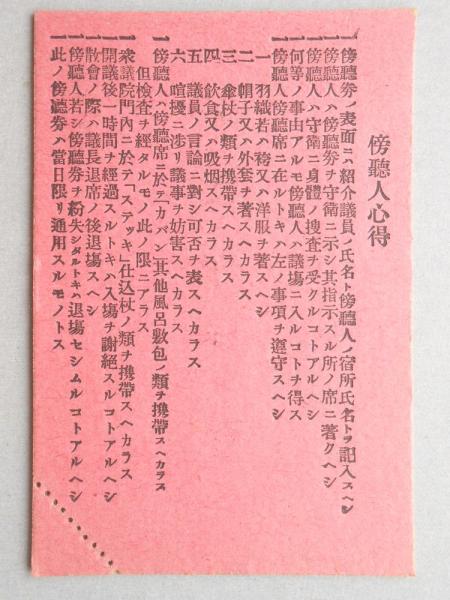 傍聽人心得
一傍聽劵ノ表面ニハ紹介議員ノ氏名ト傍聽人ノ宿所氏名トヲ記入スヘシ
一傍聽人ハ傍聽劵ヲ守衞ニ示シ其指示スル所ノ席ニ著クヘシ
一傍聽人ハ守衞ニ身體ノ搜査ヲ受クルコトアルヘシ
一何等ノ事由アルモ傍聽人ハ議塲ニ入ルコトヲ得ス
一傍聽人傍聽席ニ在ルトキハ左ノ事項ヲ遵守スヘシ
一 羽織若ハ袴又ハ洋服ヲ著スヘシ
二 帽子又ハ外套ヲ著スヘカラス
三 傘杖ノ類ヲ携帶スヘカラス
四 飮食又ハ吸烟スヘカラス
五 議員ノ言論ニ對シ可否ヲ表スヘカラス
六 喧擾ニ渉リ議事ヲ妨害スヘカラス
一傍聽人ハ傍聽席ニ於テ「カバン」其他風呂敷包ノ類ヲ携帶スヘカラス
但檢査ヲ經タルモノ此ノ限ニアラス
一衆議院門內ニ於テ「ステッキ」仕込杖ノ類ヲ携帶スヘカラス
一開議後一時間ヲ經過スルトキハ入塲ヲ謝絕スルコトアルヘシ
一散會ノ際ハ議長退席ノ後退塲スヘシ
一傍聽人若シ傍聽劵ヲ紛失シタルトキハ退塲セシムルコトアルヘシ
一此ノ傍聽劵ハ當日限リ通用スルモノトス